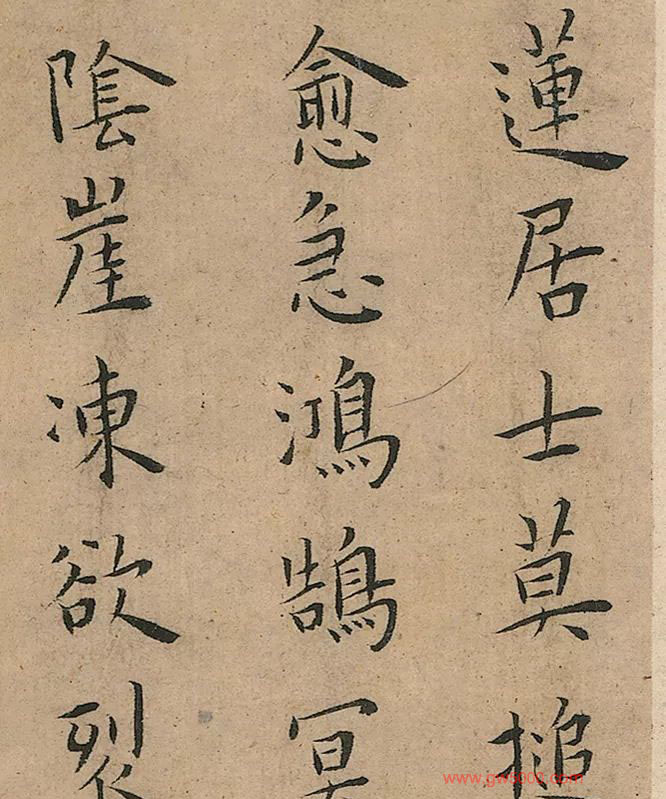 蓮居士莫搥
愈急鴻鵠冥
陰崖凍欲裂
www.gw5000.com